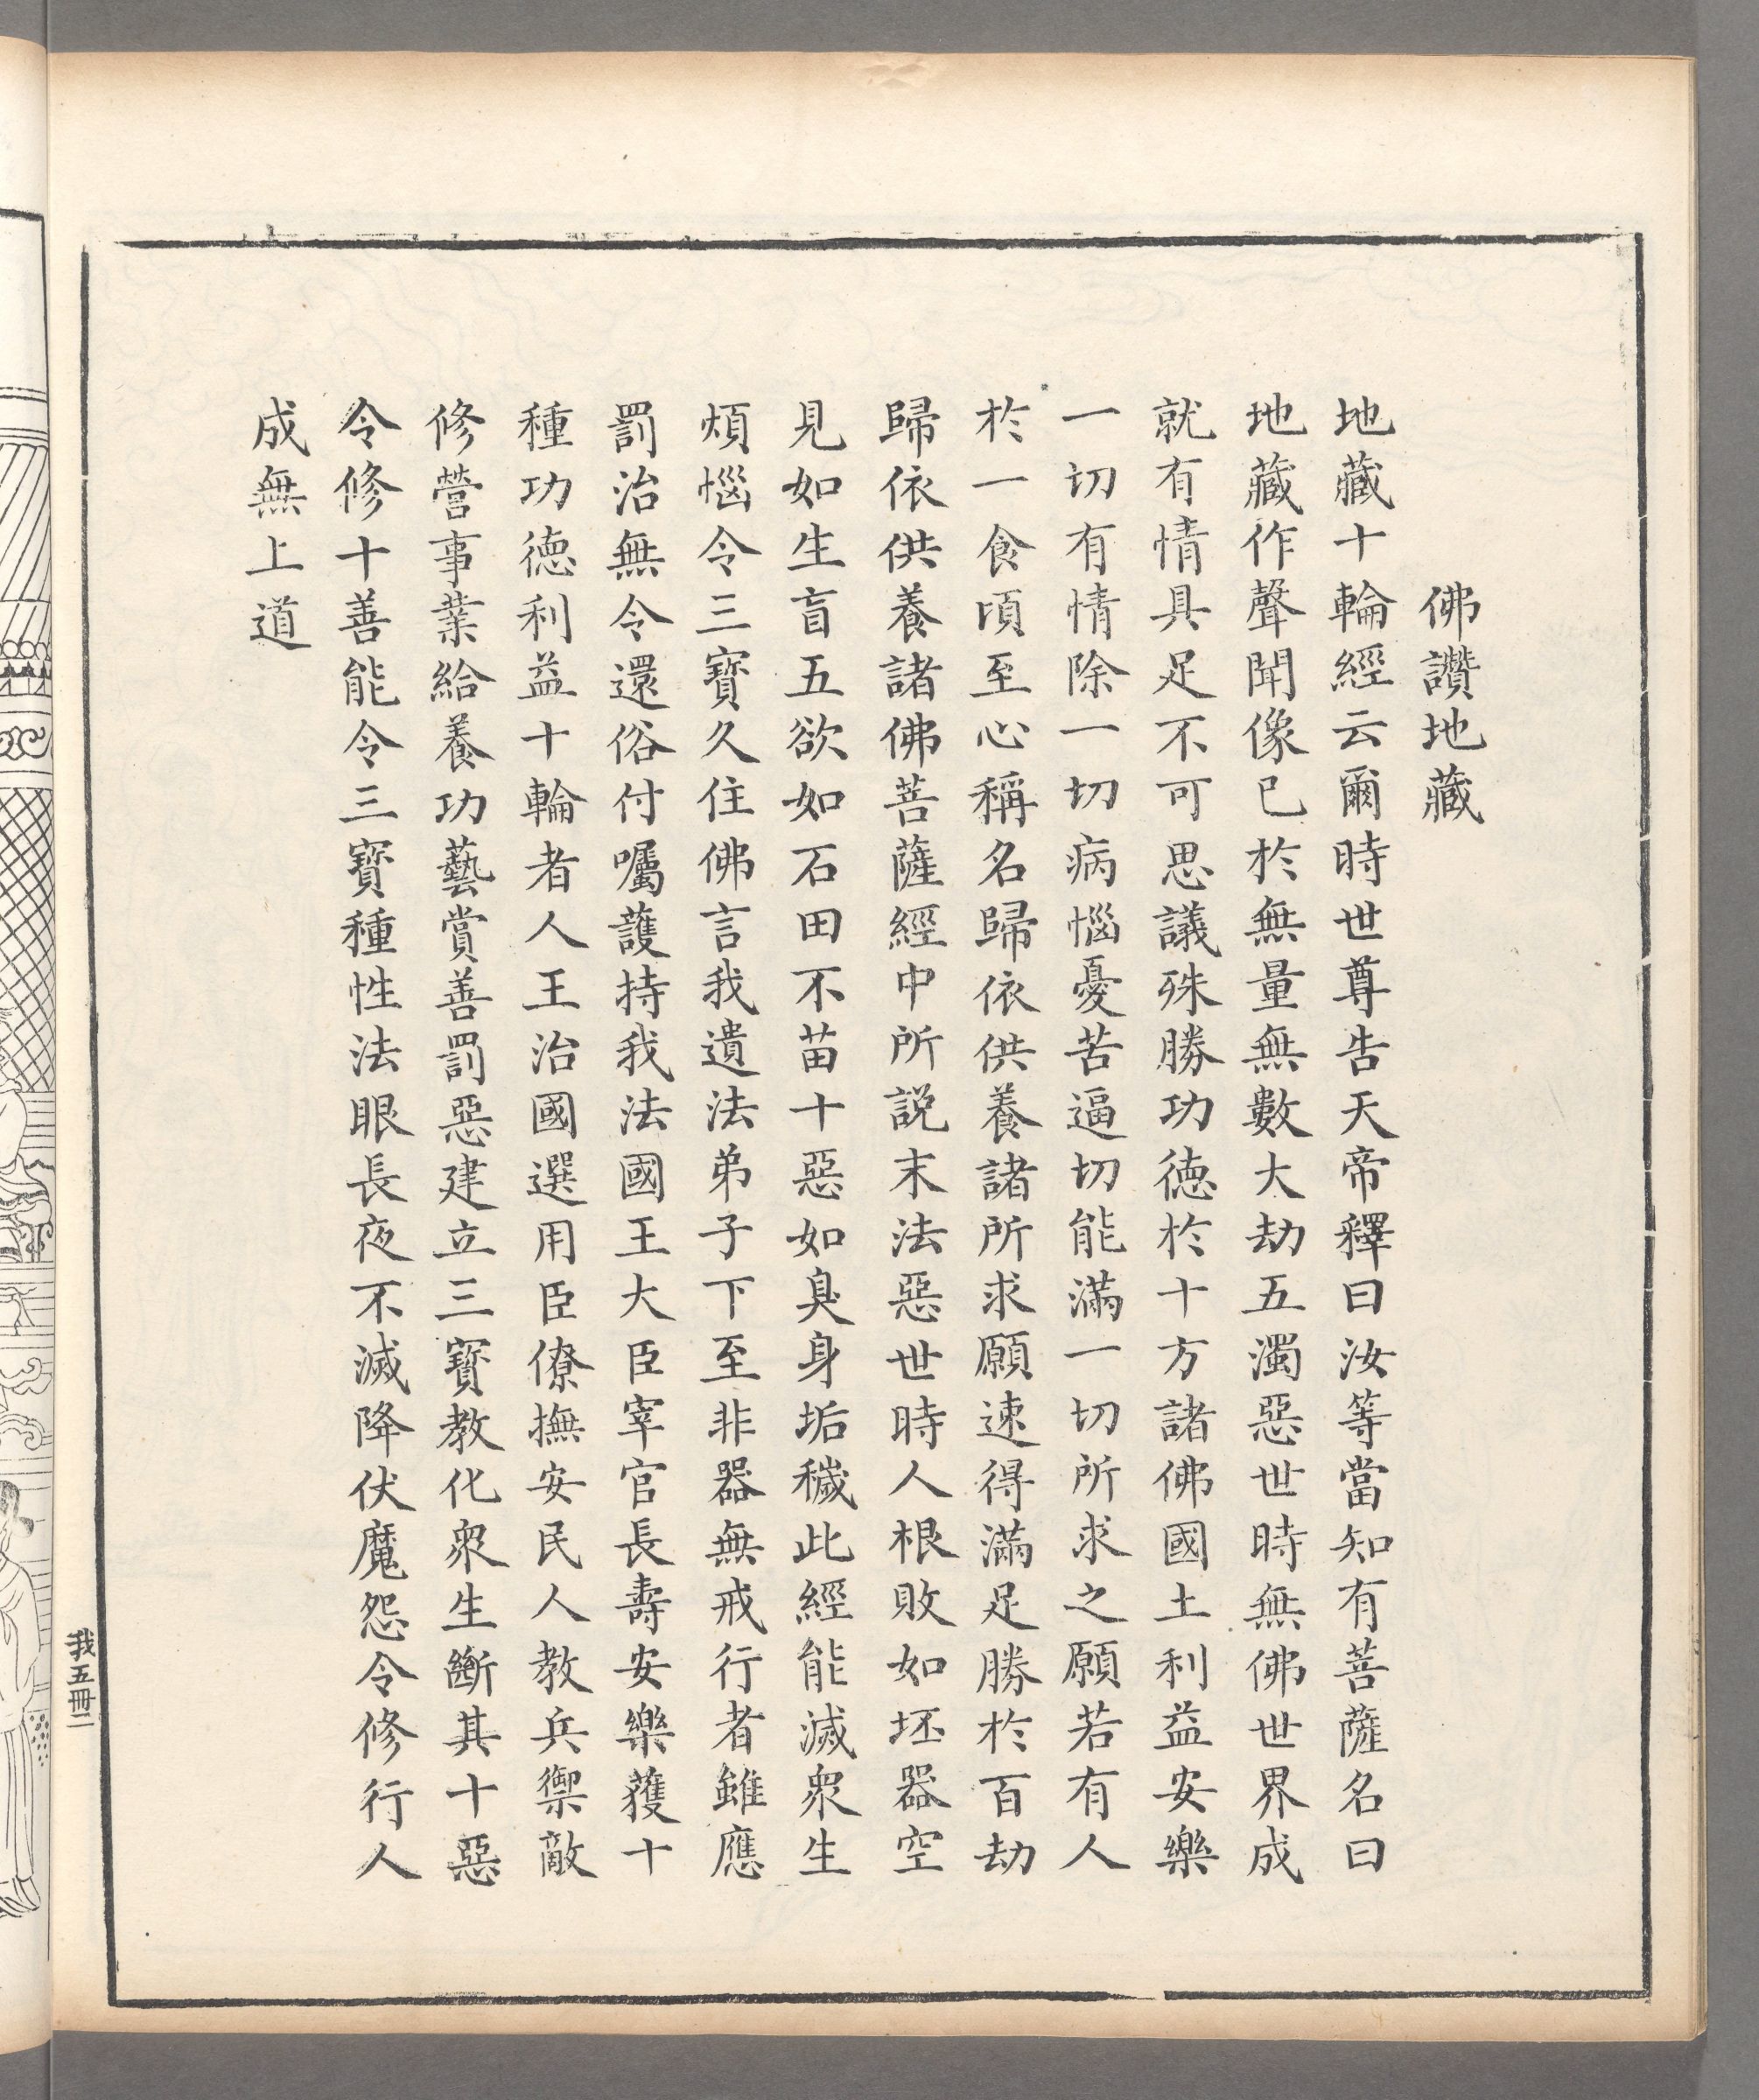 佛讚地藏
地藏十輪經云爾時世尊告天帝釋曰汝等當知有菩薩名曰
地藏作聲聞像已於無量無數大劫五濁惡世時無佛世界成
就有情具足不可思議殊勝功德於十方諸佛國土利益安樂
一切有情除一切病惱憂苦逼切能滿一切所求之願若有人
於一食頃至心稱名歸依供養諸所求願速得滿足勝於百劫
歸依供養諸佛菩薩經中所説末法惡世時人根敗如坯器空
見如生盲五欲如石田不苗十惡如臭身垢穢此經能滅衆生
煩惱令三寶久住佛言我遺法弟子下至非器無戒行者雖應
罰治無令還俗付囑護持我法國王大臣宰官長壽安樂獲十
種功德利益十輪者人王治國選用臣僚撫安民人教兵禦敵
修營事業給養功藝賞善罰惡建立三寶教化衆生斷其十惡
令修十善能令三寶種性法眼長夜不滅降伏魔怨令修行人
成無上道
我五冊二